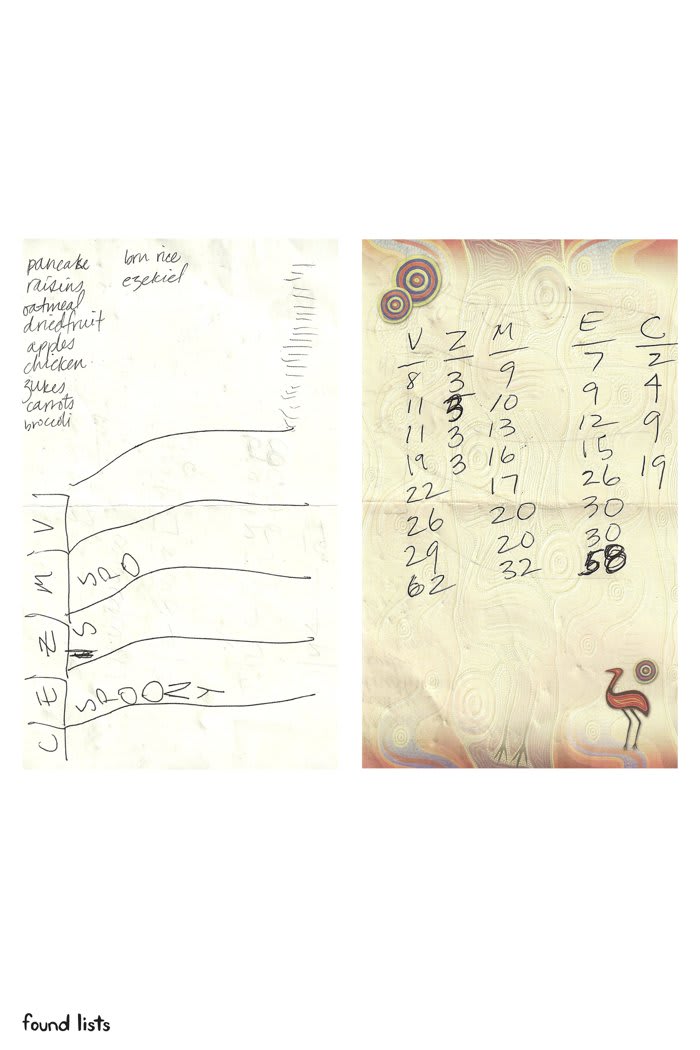 pancake
raisins
oatmeal
dried fruit
apples
chicken
zukes
carrots
broccoli
brn rice
ezekiel
V
M
SPO
Z
S
E
SPOONY
C
V Z M E C
8 3 9 7 2
11 3 10 9 4
11 3 13 12 9
19 3 16 15 19
22 17 26
26 20 30
29 20 30
62 32 58
found lists